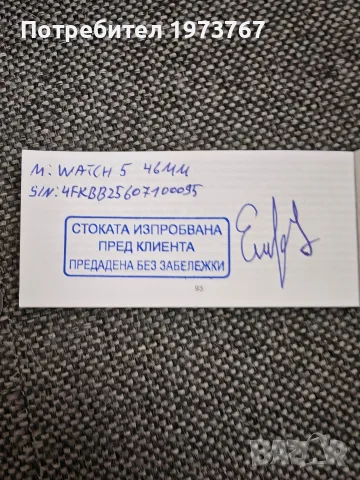 Потребител 1973767
M: WATCH 5 46MM
S/N: 4FKBB25607100095
СТОКАТА ИЗПРОБВАНА
ПРЕД КЛИЕНТА
ПРЕДАДЕНА БЕЗ ЗАБЕЛЕЖКИ
93
BAZAR